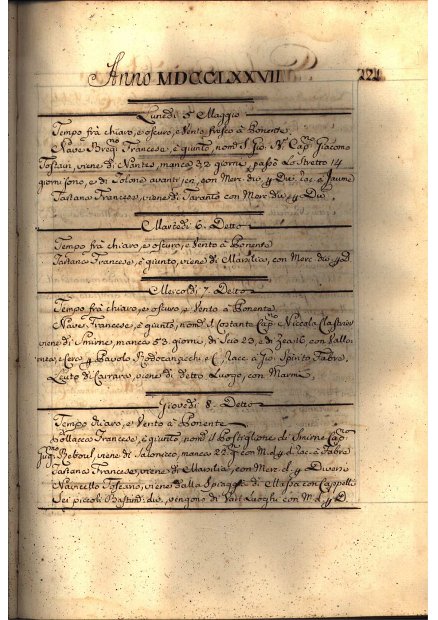 Anno MDCCLXXVII 221
Lunedì 5 Maggio
Tempo frà chiaro, e oscuro, e Vento fresco à Ponente
Nave Francese, è giunto, nom. S. Gio. Cap. Giacomo
Tostain, viene di Nantes, manca 32 giorni, passò Lo Stretto 14
giorni sono, e di Tolone avanti ieri, con Merc. div. p. racc. a Jaume
Tartana Francese, viene di Taranto con Merc. div. p. Div.
Martedì 6. Detto
Tempo frà chiaro, e oscuro, e Vento à Ponente
Tartana Francese, è giunto, viene di Marsilia, con Merc. div. p. D
Mercoldì 7. Detto
Tempo frà chiaro, e oscuro, e Vento à Ponente
Nave Francese, è giunto, nom. Costante Cap. Niccola
viene di Smirne, manca 53. giorni, di Scio 23, e di Zea 16, con Vallo-
nea, e Cera p. Pavolo Rodocanacchi e C. Racc. a Gio. Spirito Fabre,
Leuto di Carrara, viene di detto Luogo, con Marmi,
Giovedì 8. Detto
Tempo chiaro, e Vento à Ponente
Pollacca Francese, è giunto, nom. il Postiglione di Smirne Cap.
Reboul, viene di Salonicco, manca 22. g. con M. d. p. d. racc. a Fabre
Tartana Francese, viene di Marsilia, con Merc. d. p. Diversi
Navicello Toscano, viene dalla Spiaggia di Massa con Cappelli
Sei piccoli Bastim. div. vengono di Varj Luoghi con M. d. p. D